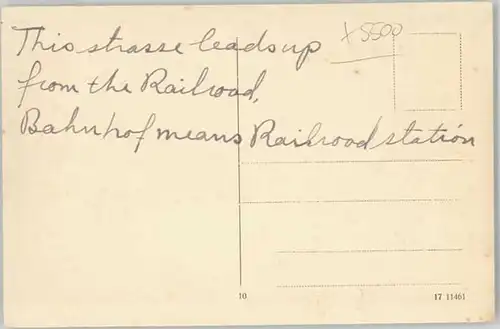 This strasse leads up
x 5500
from the Railroad,
Bahnhof means Railroad station
10
17 11461